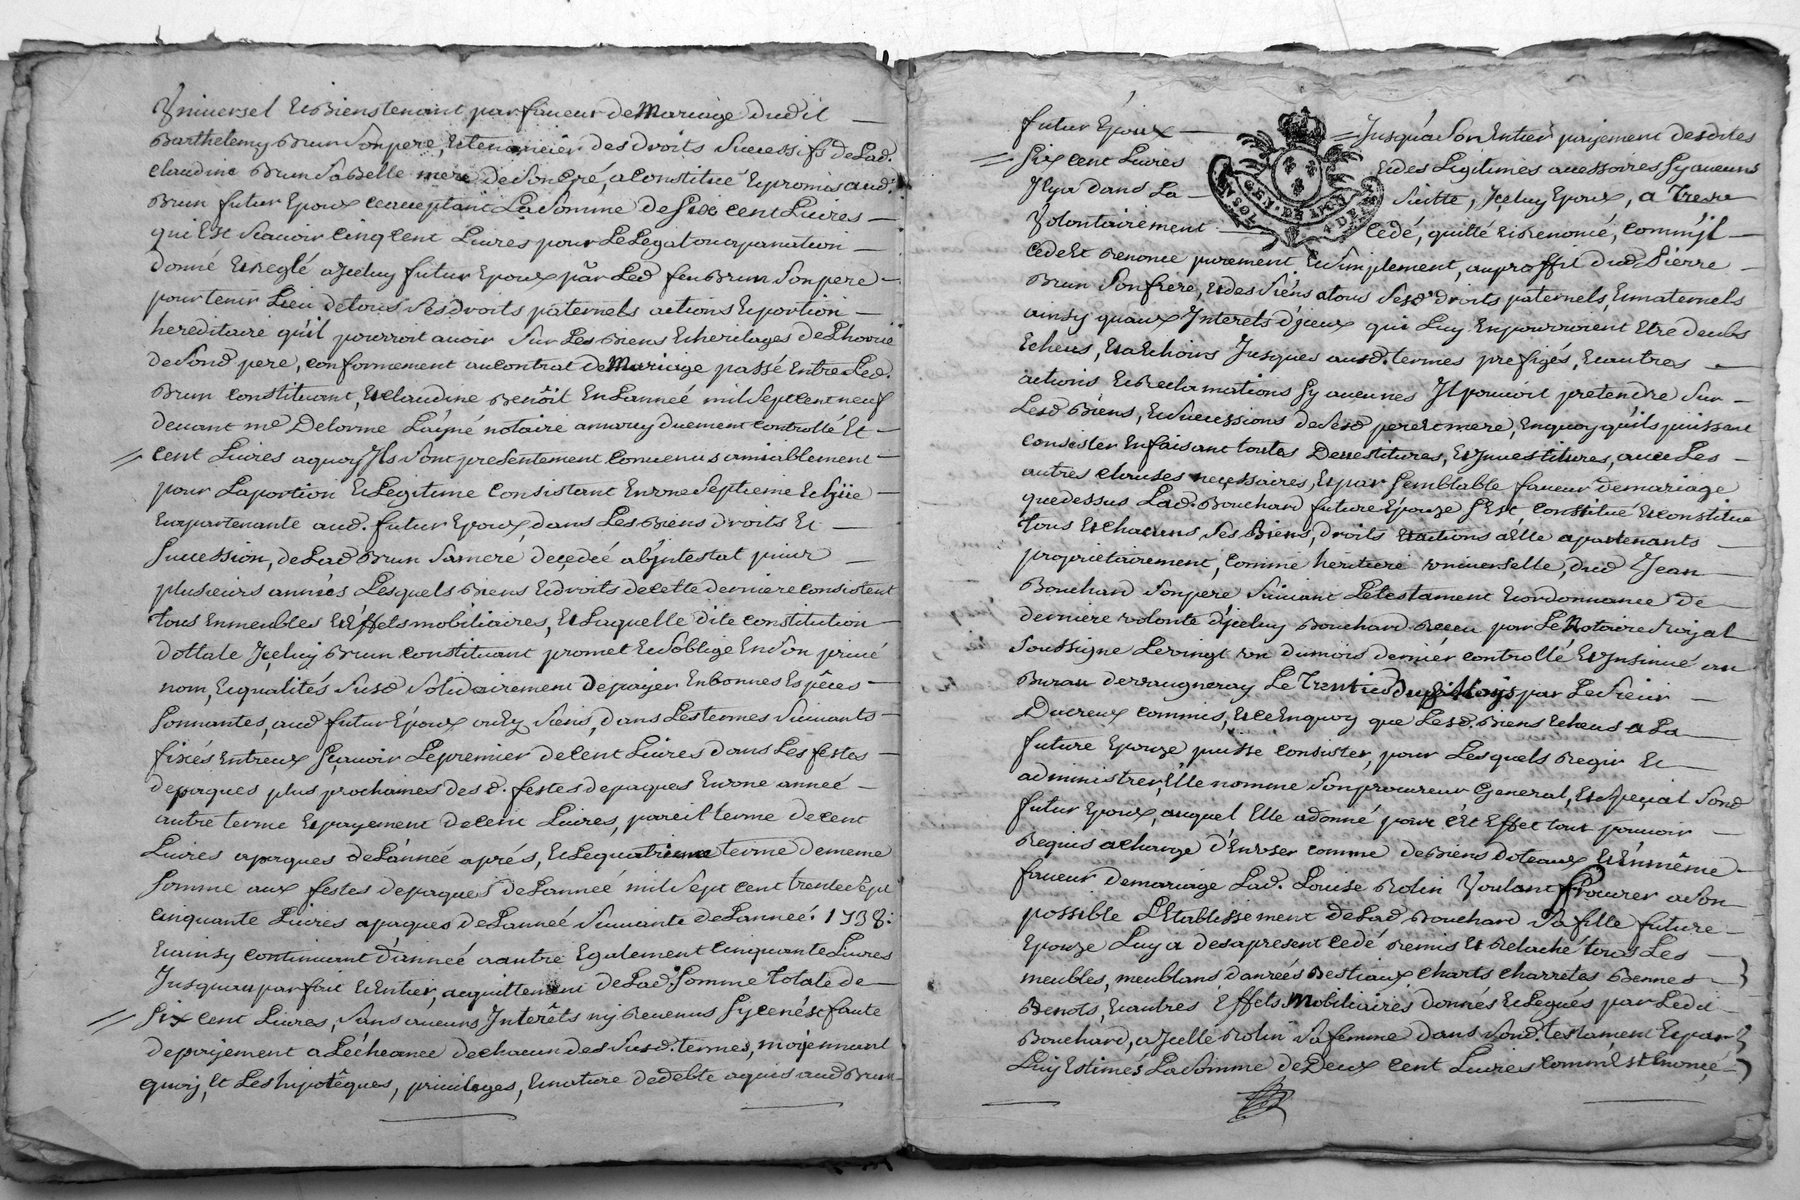 Vniversel Et Bienstenant, par faueur de Mariage dudit
Barthelemy Brun Son pere, Et tenancier des droits Successifs de Lad.
claudine Brun Sa Belle mere De Son Gré, a Constitué Et promis aud.
Brun futur Epoux ce acceptant La Somme de Six cent Liures
qui Est Scauoir Cinq cent Liures pour Le Legat ou apanation
donné Et Reglé a Jceluy futur Epoux par Led feu Brun Son pere
pour tenir Lieu de tous Ses droits paternels actions Et portion
hereditaire qu'il pourroit auoir Sur Les Biens Et heritages de Lhoirie
de Sond pere, Conformement au Contrat de Mariage passé Entre Led.
Brun Constituant, Et claudine Benoît En L'anneé mil Sept Cent neuf
deuant me Delorme L'áyné notaire duement Controllé Et
cent Liures a quoy Jls Sont presentement Conuenus amiablement
pour La portion Et Legitime Consistant En vne Septieme Echüe
Et apartenante aud. futur Epoux, dans Les Biens droits Et
Succession, de Lad Brun Sa mere decedeé ab Jntestat puis
plusieurs anneés Lesquels Biens Et droits de cette derniere Consistent
tous En meubles Et Effets mobiliaires, Et Laquelle dite Constitution
dottale Jceluy Brun Constituant promet Et S'oblige En Son priué
nom, Et qualités Susd Solidairement de payer En bonnes Espêces
Sonnantes, aud futur Epoux ou Ez Siens, dans Les termes Suiuants
fixés Entreux Scauoir Le premier de Cent Liures dans Les festes
de paques plus prochaines des d. festes de paques En vne anneé
autre terme Et payement de Cent Liures, pareil terme de Cent
Liures a paques de L'anneé aprés, Et Le quatrieme terme de meme
Somme aux festes de paques de L'anneé mil Sept Cent trente Sept
Cinquante Liures a paques de L'anneé Suiuante de L'anneé. 1738.
Et ainsy Continuant d'anneé a autre Egalement Cinquante Liures
Jusqu'au parfait Et Entier, acquittement de Lad. Somme totale de
Six Cent Liures, Sans aucuns Jnterêts ny Reuenus Sy Ce n'ést faute
de payement a L'écheance de chacun des Susd. termes, moyennant
quoy, Et Les hipotêques, priuileges, Et nature de debte aquis aud Brun
futur Epoux Jusqu'a Son Entier payement desdites
Six cent Liures Et des Legitimes accessoires Sy aucuns
Jl y a dans La Suitte, Jceluy Epoux, a
Volontairement Cedé, quitté Et Renoncé, Comm'Jl
Cede Et Renonce purement Et Simplement, au proffit dud Pierre
Brun Son frere, Et des Siéns a tous Sesd. droits paternels, Et maternels
ainsy qu'aux Jnterets d'jceux qui Luy En pourroient Etre deubs
Echeus, Et a Echoirs Jusques ausd. termes prefigés, Et autres
actions Et Reclamations Sy aucunes Jl pouuoit pretendre Sur
Lesd Biéns, Et Successions de Sesd pere Et mere, En quoy qu'ils puissent
Consister En faisant toutes Deuestitures, Et Jnuestitures, auec Les
autres Clauses necessaires, Et par Semblable faueur de mariage
que dessus Lad. Bouchard future Epouze S'Est Constitué Et Constitue
tous Et chacuns Ses Biens, droits Et actions a Elle apartenants
proprietairement, Comme heritiere vniuerselle, dud Jean
Bouchard Son pere Suiuant Le testament Et ordonnance de
derniere volonté d'jceluy Bouchard Receu par Le Notaire Royal
Soussigné Le vingt vn du mois dernier Controllé Et Jnsinué au
Bureau de vaugneray Le par Le Sieur
Ducreux Commis, Et ce En quoy que Lesd. Biens Echeus a La
future Epouze puisse Consister, pour Lesquels Regir Et
administrer, Elle nomme Son procureur General, Et Special Sond
futur Epoux, auquel Elle a donné pour cet Effet tout pouuoir
Requis a charge d'En vser Comme de Biens doteaux Et En même
faueur de mariage Lad. Louise Rolin Voulant Procurer a Son
possible L'Etablissement de Lad Bouchard Sa fille future
Epouze Luy a des apresent Cedé Remis Et Relaché tous Les
meubles, meublans danreés Bestiaux Charts Charretes Bennes
Benots, Et autres Effets Mobiliaires donnés Et Legués par Ledit
Bouchard, a Jcelle Rolin Sa femme dans Sond. testament Et par
Luy Estimés La Somme de Deux Cent Liures Comm'il Est Enoncé